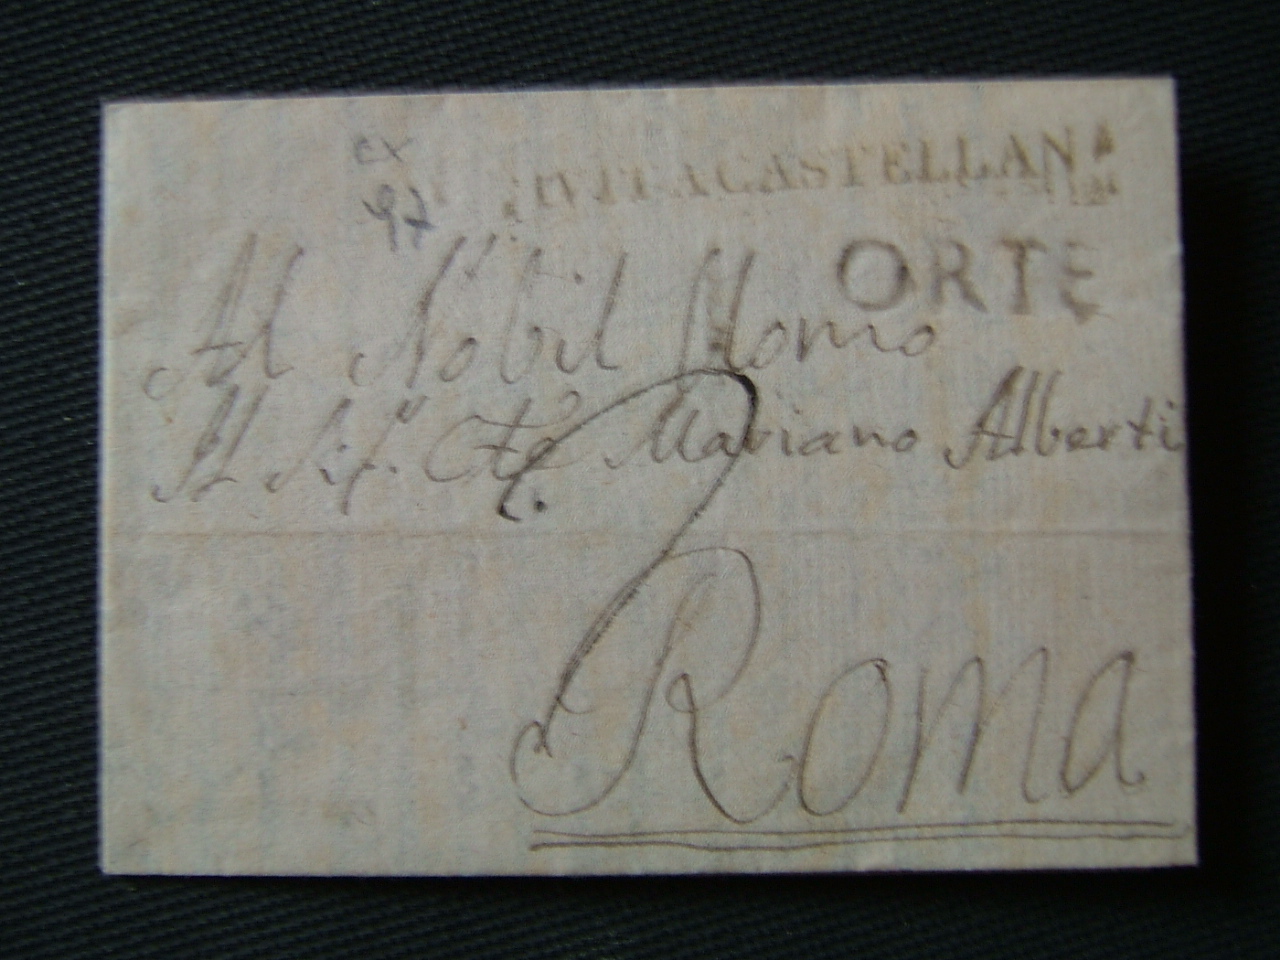 ex
97
CIVITACASTELLANA
ORTE
Al Nobil Homo
Il Sig. Cte Mariano Alberti
Roma